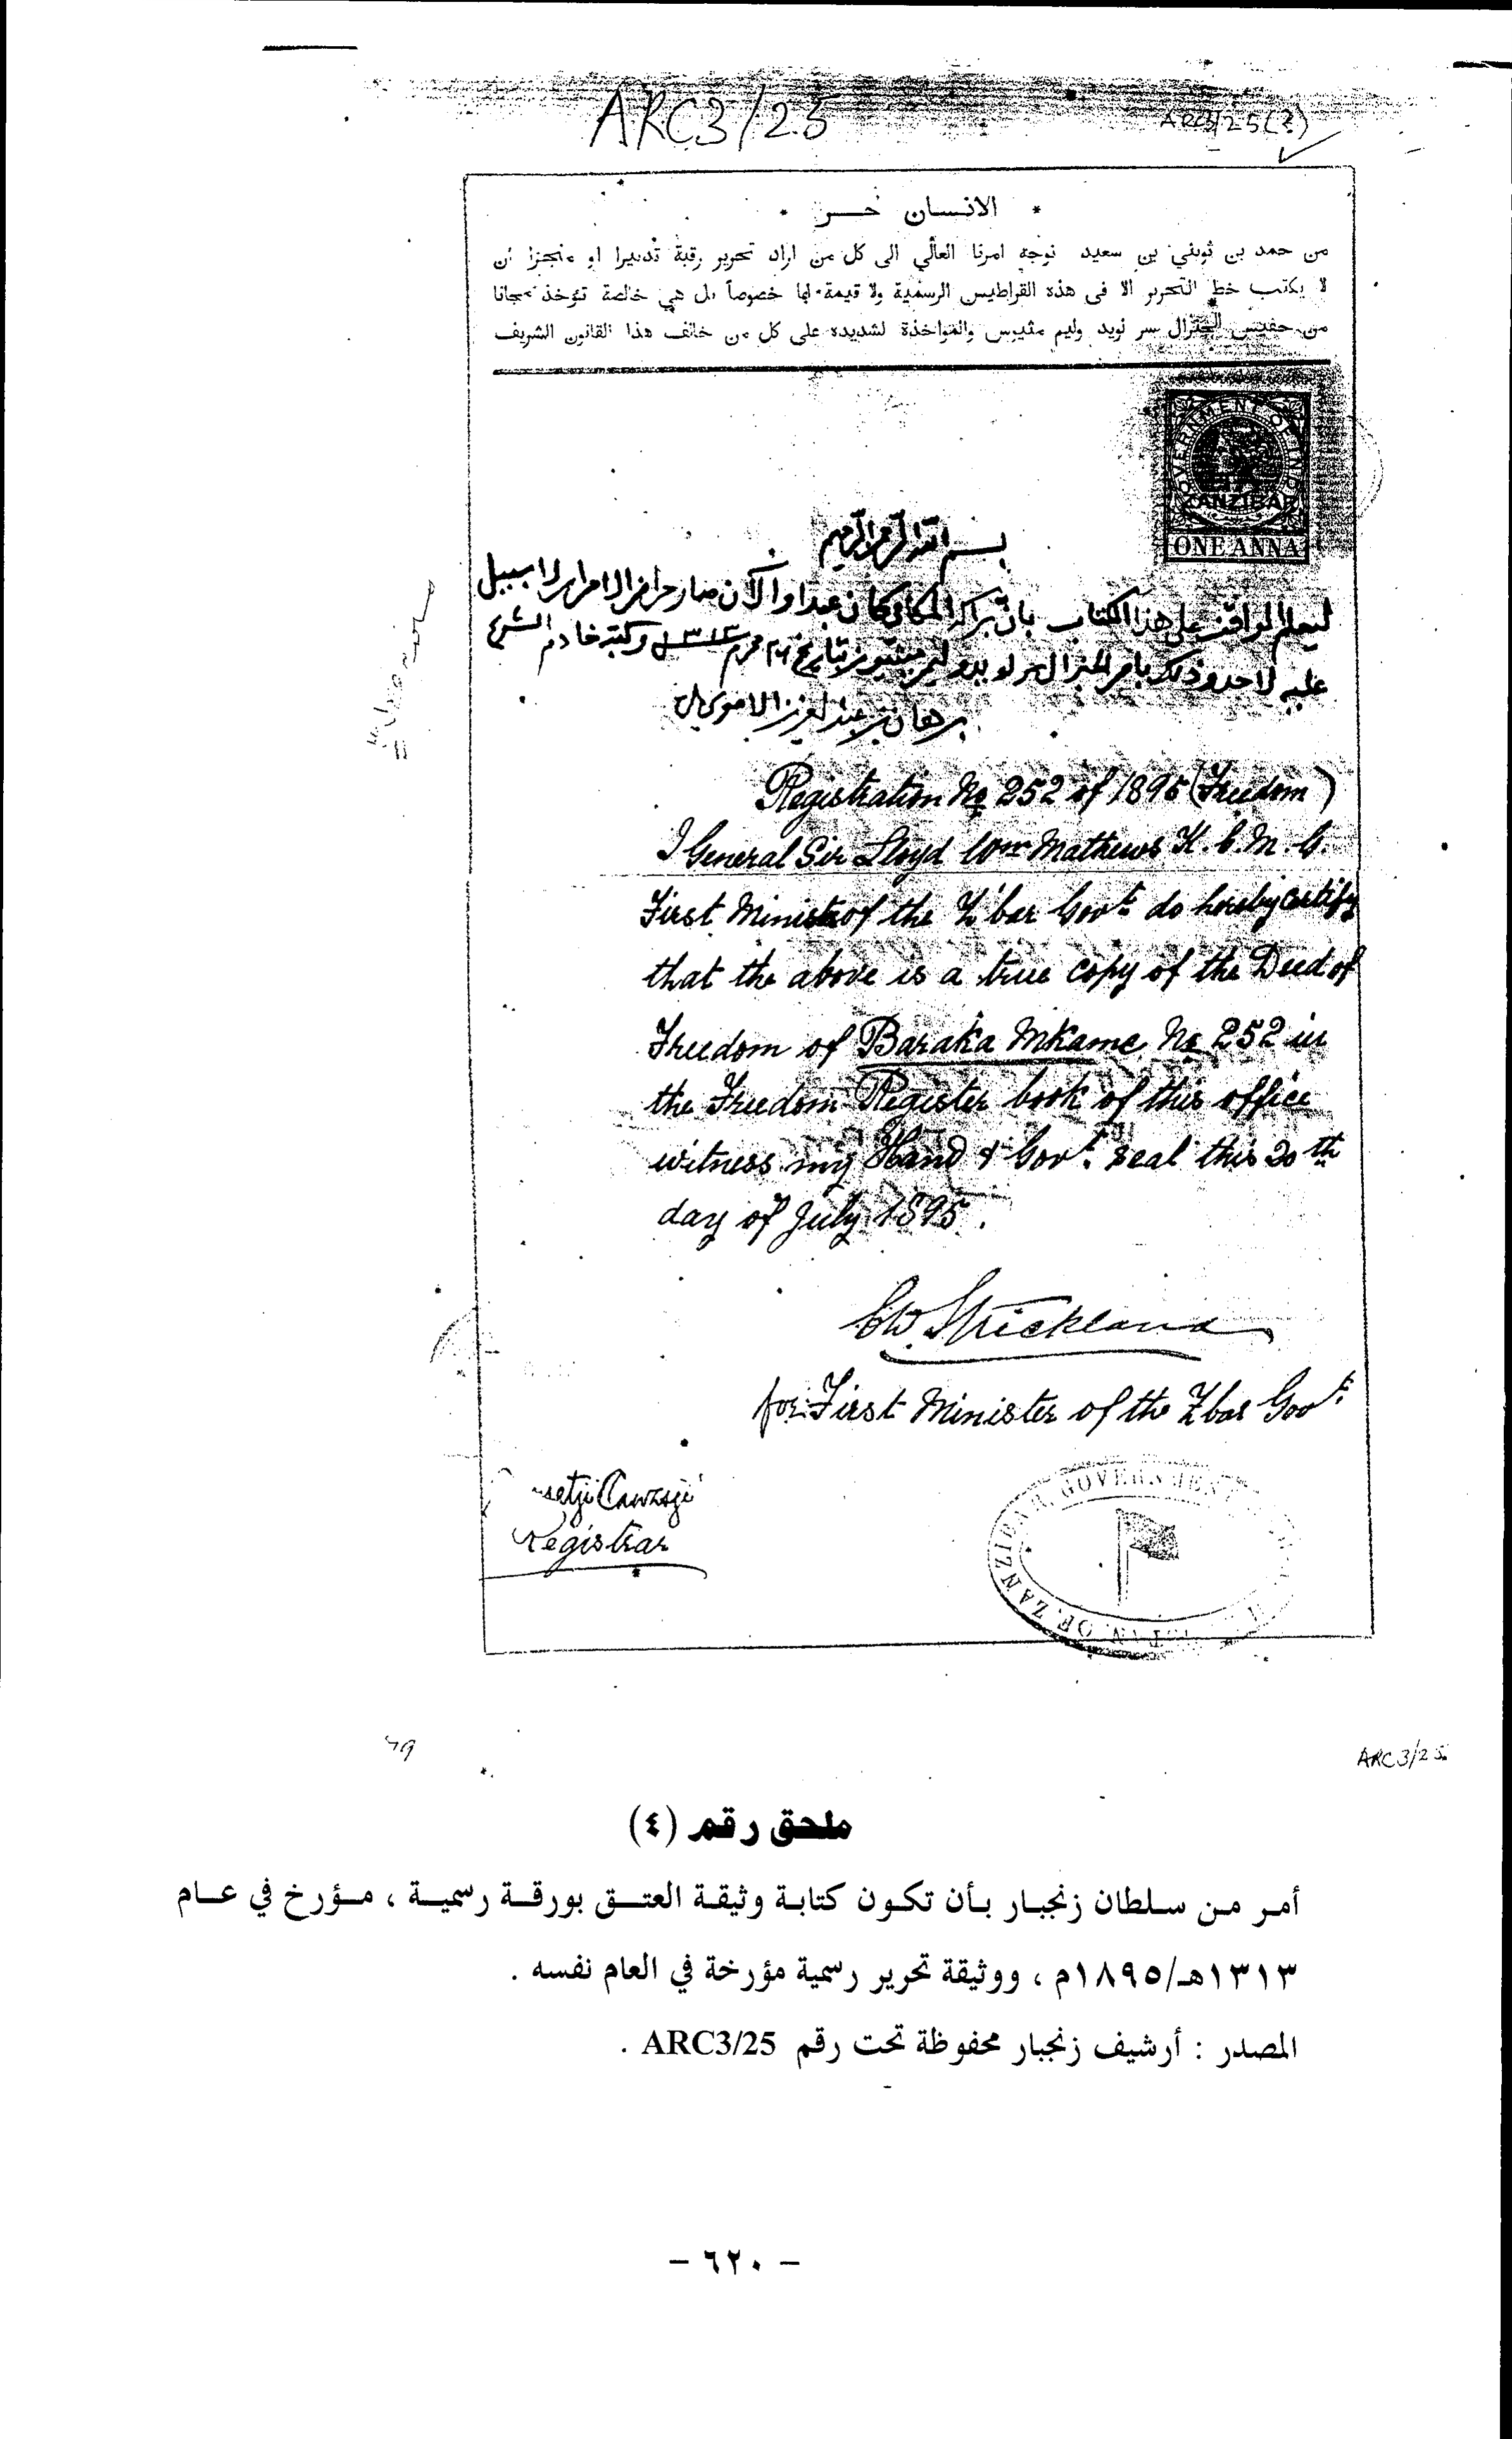 ARC3/25
ARC3/25(2)
* الانسان حـــر *
من حمد بن ثويني بن سعيد نوجه امرنا العالي الى كل من اراد تحرير رقبة تدبيرا او منجزا ان
لا يكتب خط التحرير الا فى هذه القراطيس الرسمية ولا قيمة لها خصوصاً بل هي خالصة تؤخذ مجانا
من حفيس الجنرال سر لويد وليم مثيوس والمواخذة لشديده على كل من خالف هذا القانون الشريف
GOVERNMENT OF INDIA
ZANZIBAR
ONE ANNA
بسم الله الرحمن الرحيم
ليعلم الواقف على هذا الكتاب بان بركة المكامي كان عبدا والآن صار حرا من الاحرار لا سبيل
عليه لاحد وذلك بامر الجنرال سر لويد وليم ميثيوز بتاريخ ٢٦ محرم ١٣١٣ وكتبه خادم الشرع
برهان بن عبد العزيز الاموي
Registration No 252 of 1895 (Freedom)
I General Sir Lloyd Wm Mathews K.C.M.G.
First Minister of the Z'bar Govt. do hereby certify
that the above is a true copy of the Deed of
Freedom of Baraka Mkame No 252 in
the Freedom Register book of this office
witness my Hand & Govt. seal this 20th
day of July 1895.
CW. Strickland
for First Minister of the Zbar Govt.
setji Cawasji
Registrar
ZANZIBAR GOVERNMENT
OF ZANZIBAR
ARC3/25
ملحق رقم (٤)
أمر من سلطان زنجبار بأن تكون كتابة وثيقة العتق بورقة رسمية ، مؤرخ في عام
١٣١٣هـ/١٨٩٥م ، ووثيقة تحرير رسمية مؤرخة في العام نفسه .
المصدر : أرشيف زنجبار محفوظة تحت رقم ARC3/25 .
– ٦٢٠ –